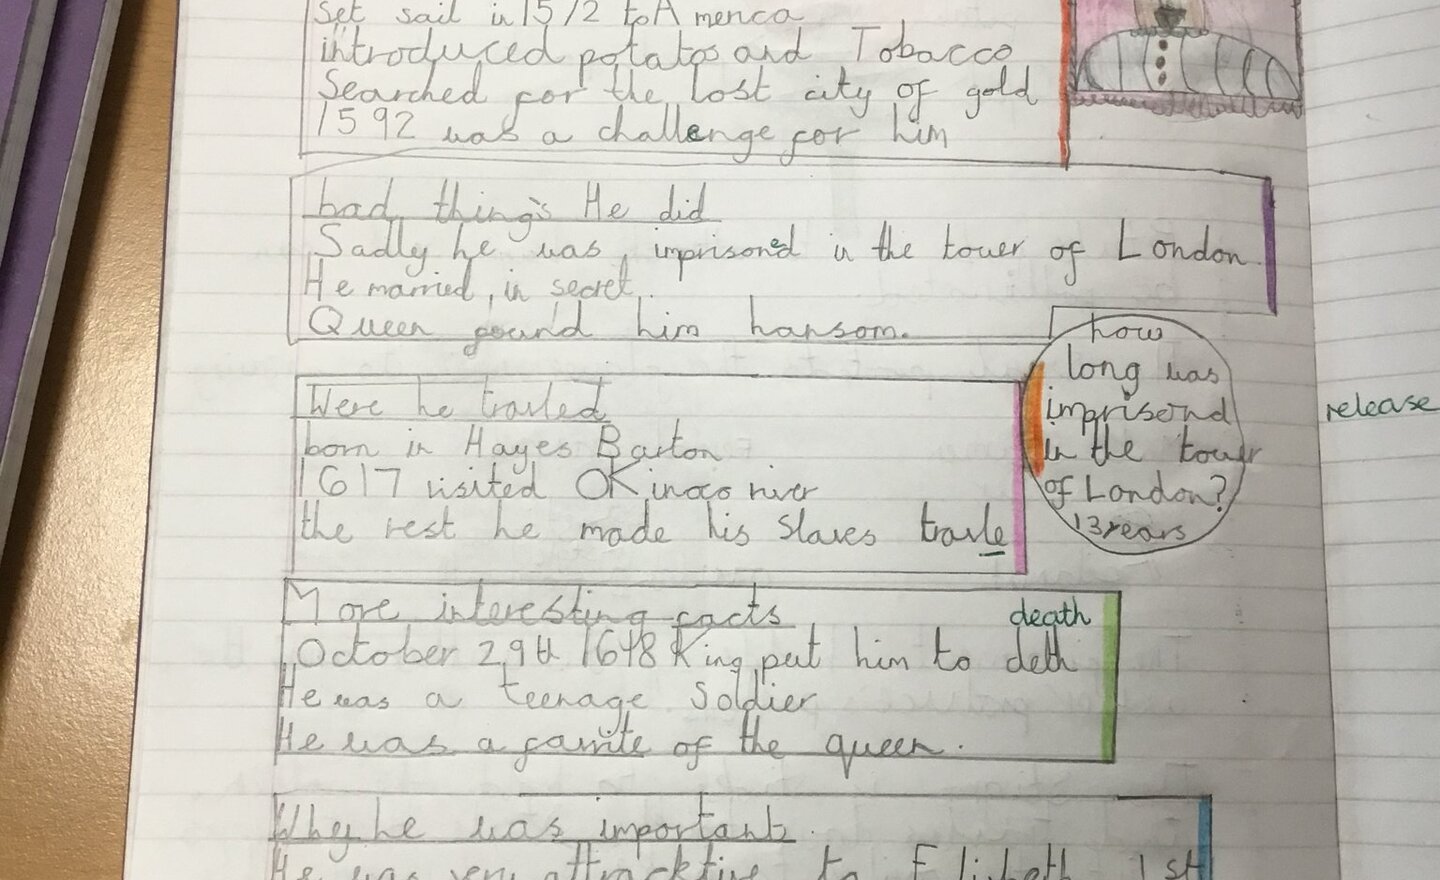 Set sail in 1572 to America
introduced potatos and Tobacco
Searched for the lost city of gold
1592 was a challenge for him
bad things He did
Sadly he was imprisoned in the tower of London.
He married, in secret.
Queen found him hansom.
how
long was
imprisond
in the tower
of London?
13 years
release
Were he travled
born in Hayes Barton
1617 visited river
the rest he made his slaves travle
More interesting facts
death
October 29th 1648 King put him to deth
He was a teenage Soldier
He was a favrite of the queen.
Why he was important
He was very attracktive to Elizbeth 1st